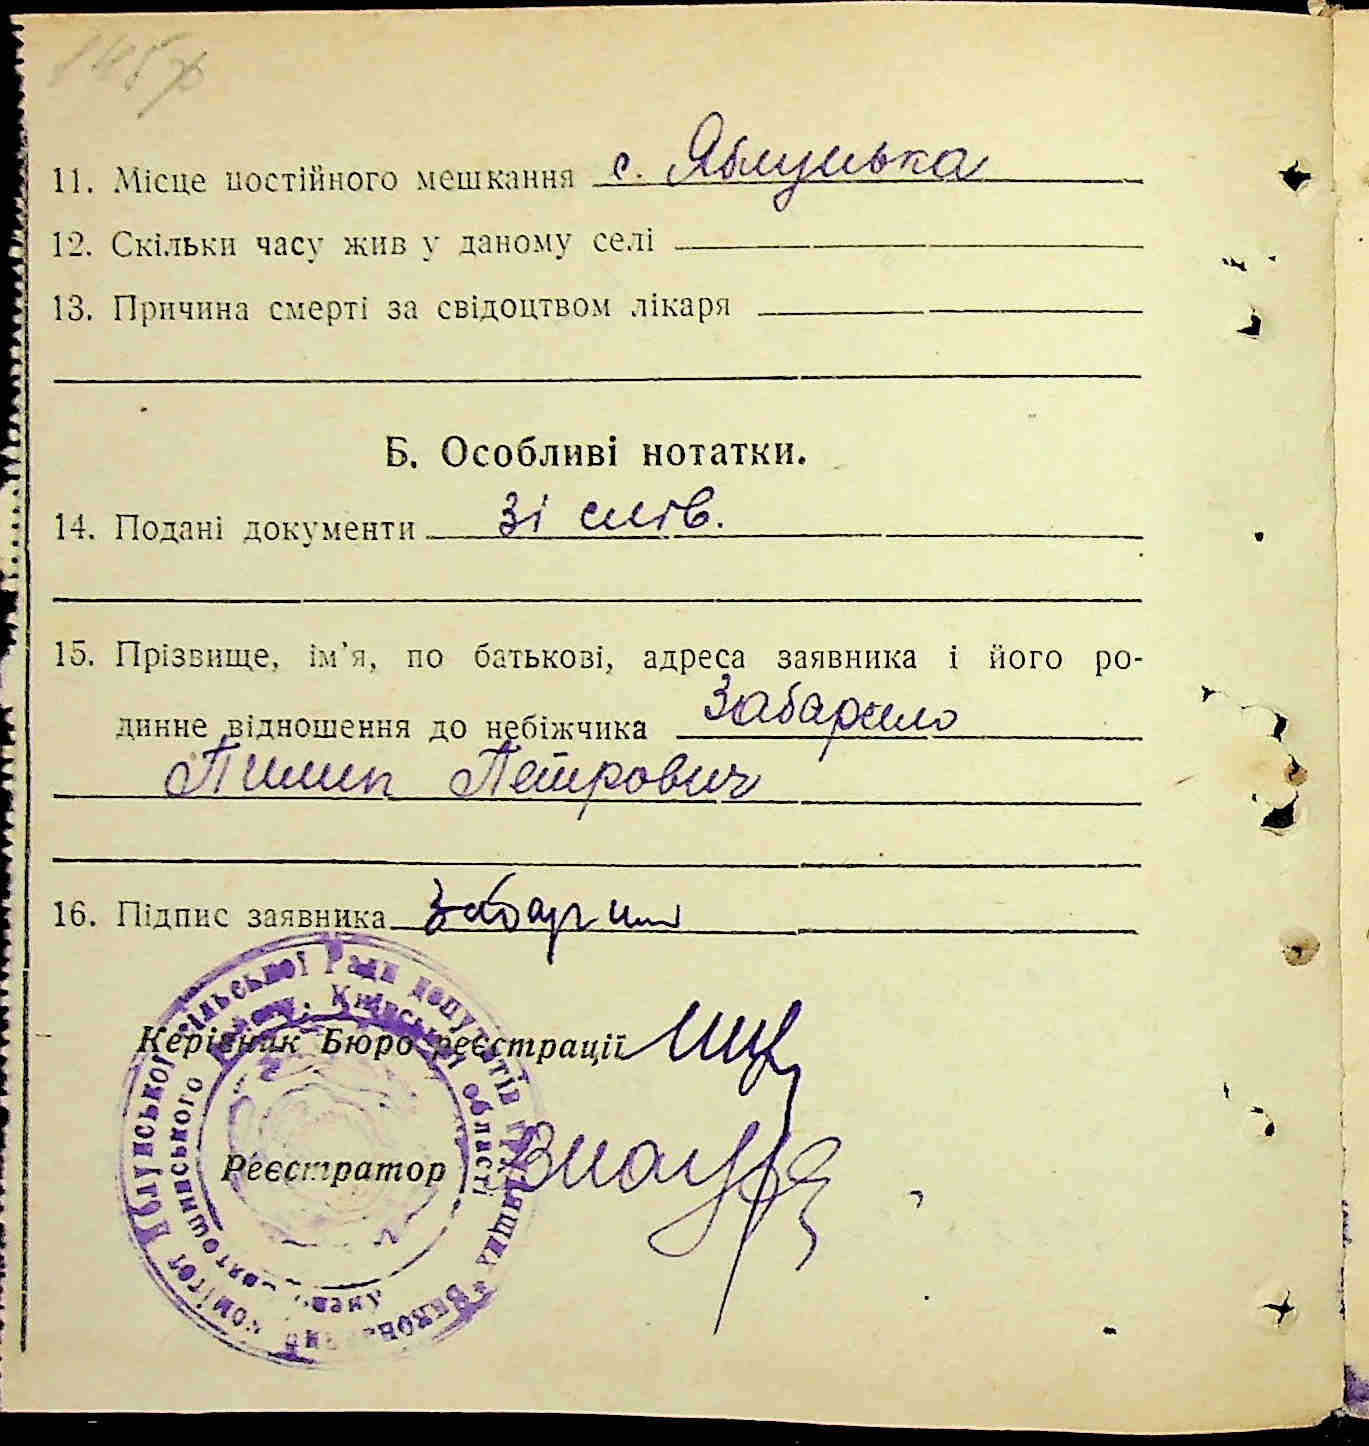 145
11. Місце постійного мешкання с. Яблунька
12. Скільки часу жив у даному селі
13. Причина смерті за свідоцтвом лікаря
Б. Особливі нотатки.
14. Подані документи зі слів.
15. Прізвище, ім'я, по батькові, адреса заявника і його ро-
динне відношення до небіжчика Забарило
Пилип Петрович
16. Підпис заявника
Керівник Бюро реєстрації
Реєстратор
сільської Ради депутатів трудящих * Виконавчий комітет
Києво-Святошинського району, Київської області